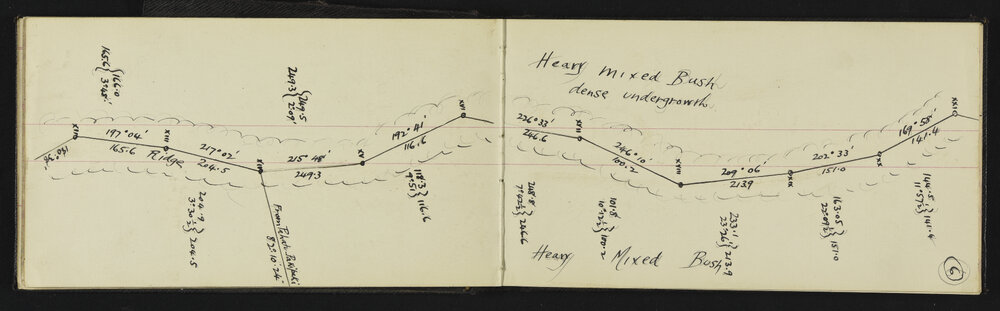 166.0
3°48'
165.6
249.5
2°09'
249.3
XII
197° 04'
165.6
XIII
Ridge
217° 02'
204.5
215° 48'
249.3
XV
192° 41'
116.6
XVI
204.9
3°30½'
204.5
82° 10' 24"
118.3
9°51'
116.6
Heavy Mixed Bush
dense undergrowth
226° 33'
246.6
XVII
246° 10'
100.2
XVIII
209° 06
213.9
XIX
202° 33'
151.0
XX
169° 58'
141.4
XXI
248.8
7°42½'
246.6
101.8
10°12½'
100.2
233.1
23°26'
213.9
163.05
22°09½'
151.0
144.5
11°57½'
141.4
Heavy Mixed Bush
6